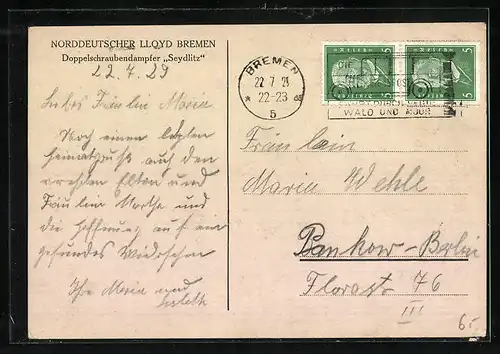 NORDDEUTSCHER LLOYD BREMEN
Doppelschraubendampfer „Seydlitz"
22.7.29
Liebes Fräulein Maria
Noch einen letzten
Heimatgruß auf den
Eltern und
Fräulein Marthe und
die Hoffnung auf ein
gesundes Wiedersehen
Ihre Maria und
BREMEN
22.7.29
22-23
5
5 5
WALD UND MOOR
Fräulein
Maria Wehle
Pankow-Berlin
Florastr 76
III
6.-